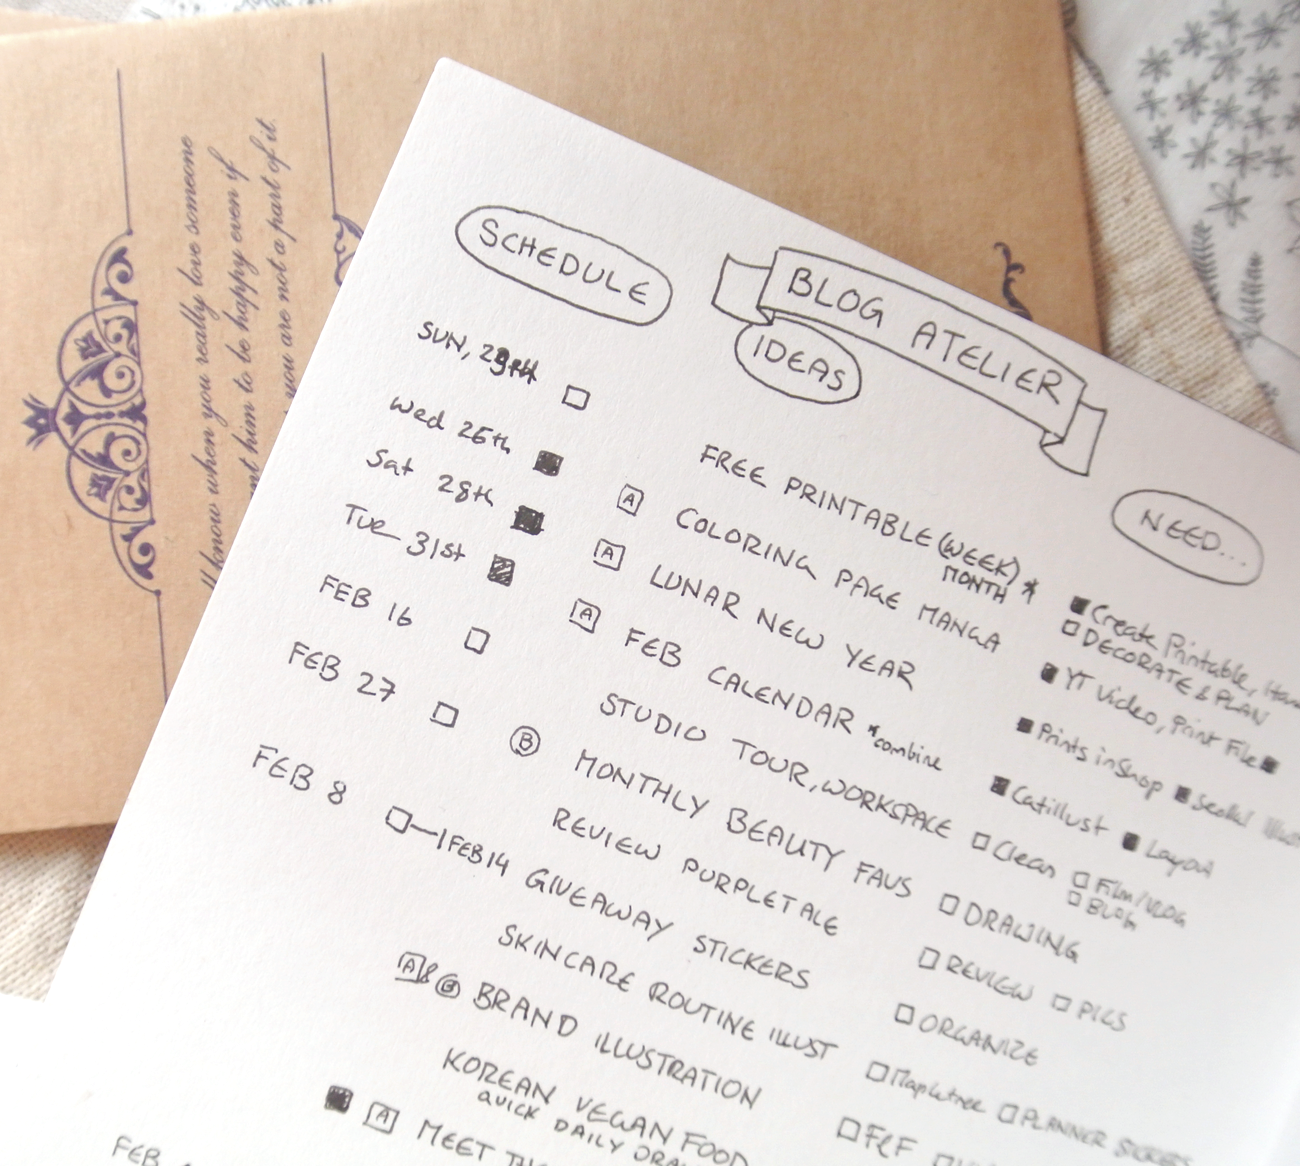 SCHEDULE
BLOG ATELIER
IDEAS
NEED...
SUN, 29th
FREE PRINTABLE (WEEK) *
MONTH
Create Printable,
DECORATE & PLAN
Wed 25th
A COLORING PAGE MANGA
YT Video, Print File
Sat 28th
A LUNAR NEW YEAR
Prints in Shop
Tue 31st
A FEB CALENDAR *combine
Catillust Layout
FEB 16
STUDIO TOUR, WORKSPACE
Clean Film/VLOG
Blog
FEB 27
B MONTHLY BEAUTY FAVS
DRAWING
REVIEW PURPLETALE
REVIEW PICS
FEB 8
1 FEB 14 GIVEAWAY STICKERS
ORGANIZE
SKINCARE ROUTINE ILLUST
PLANNER STICKERS
A & B BRAND ILLUSTRATION
KOREAN VEGAN FOOD
QUICK DAILY
A MEET
FEB
know when you really love someone
him to be happy even if
you are not a part of it.